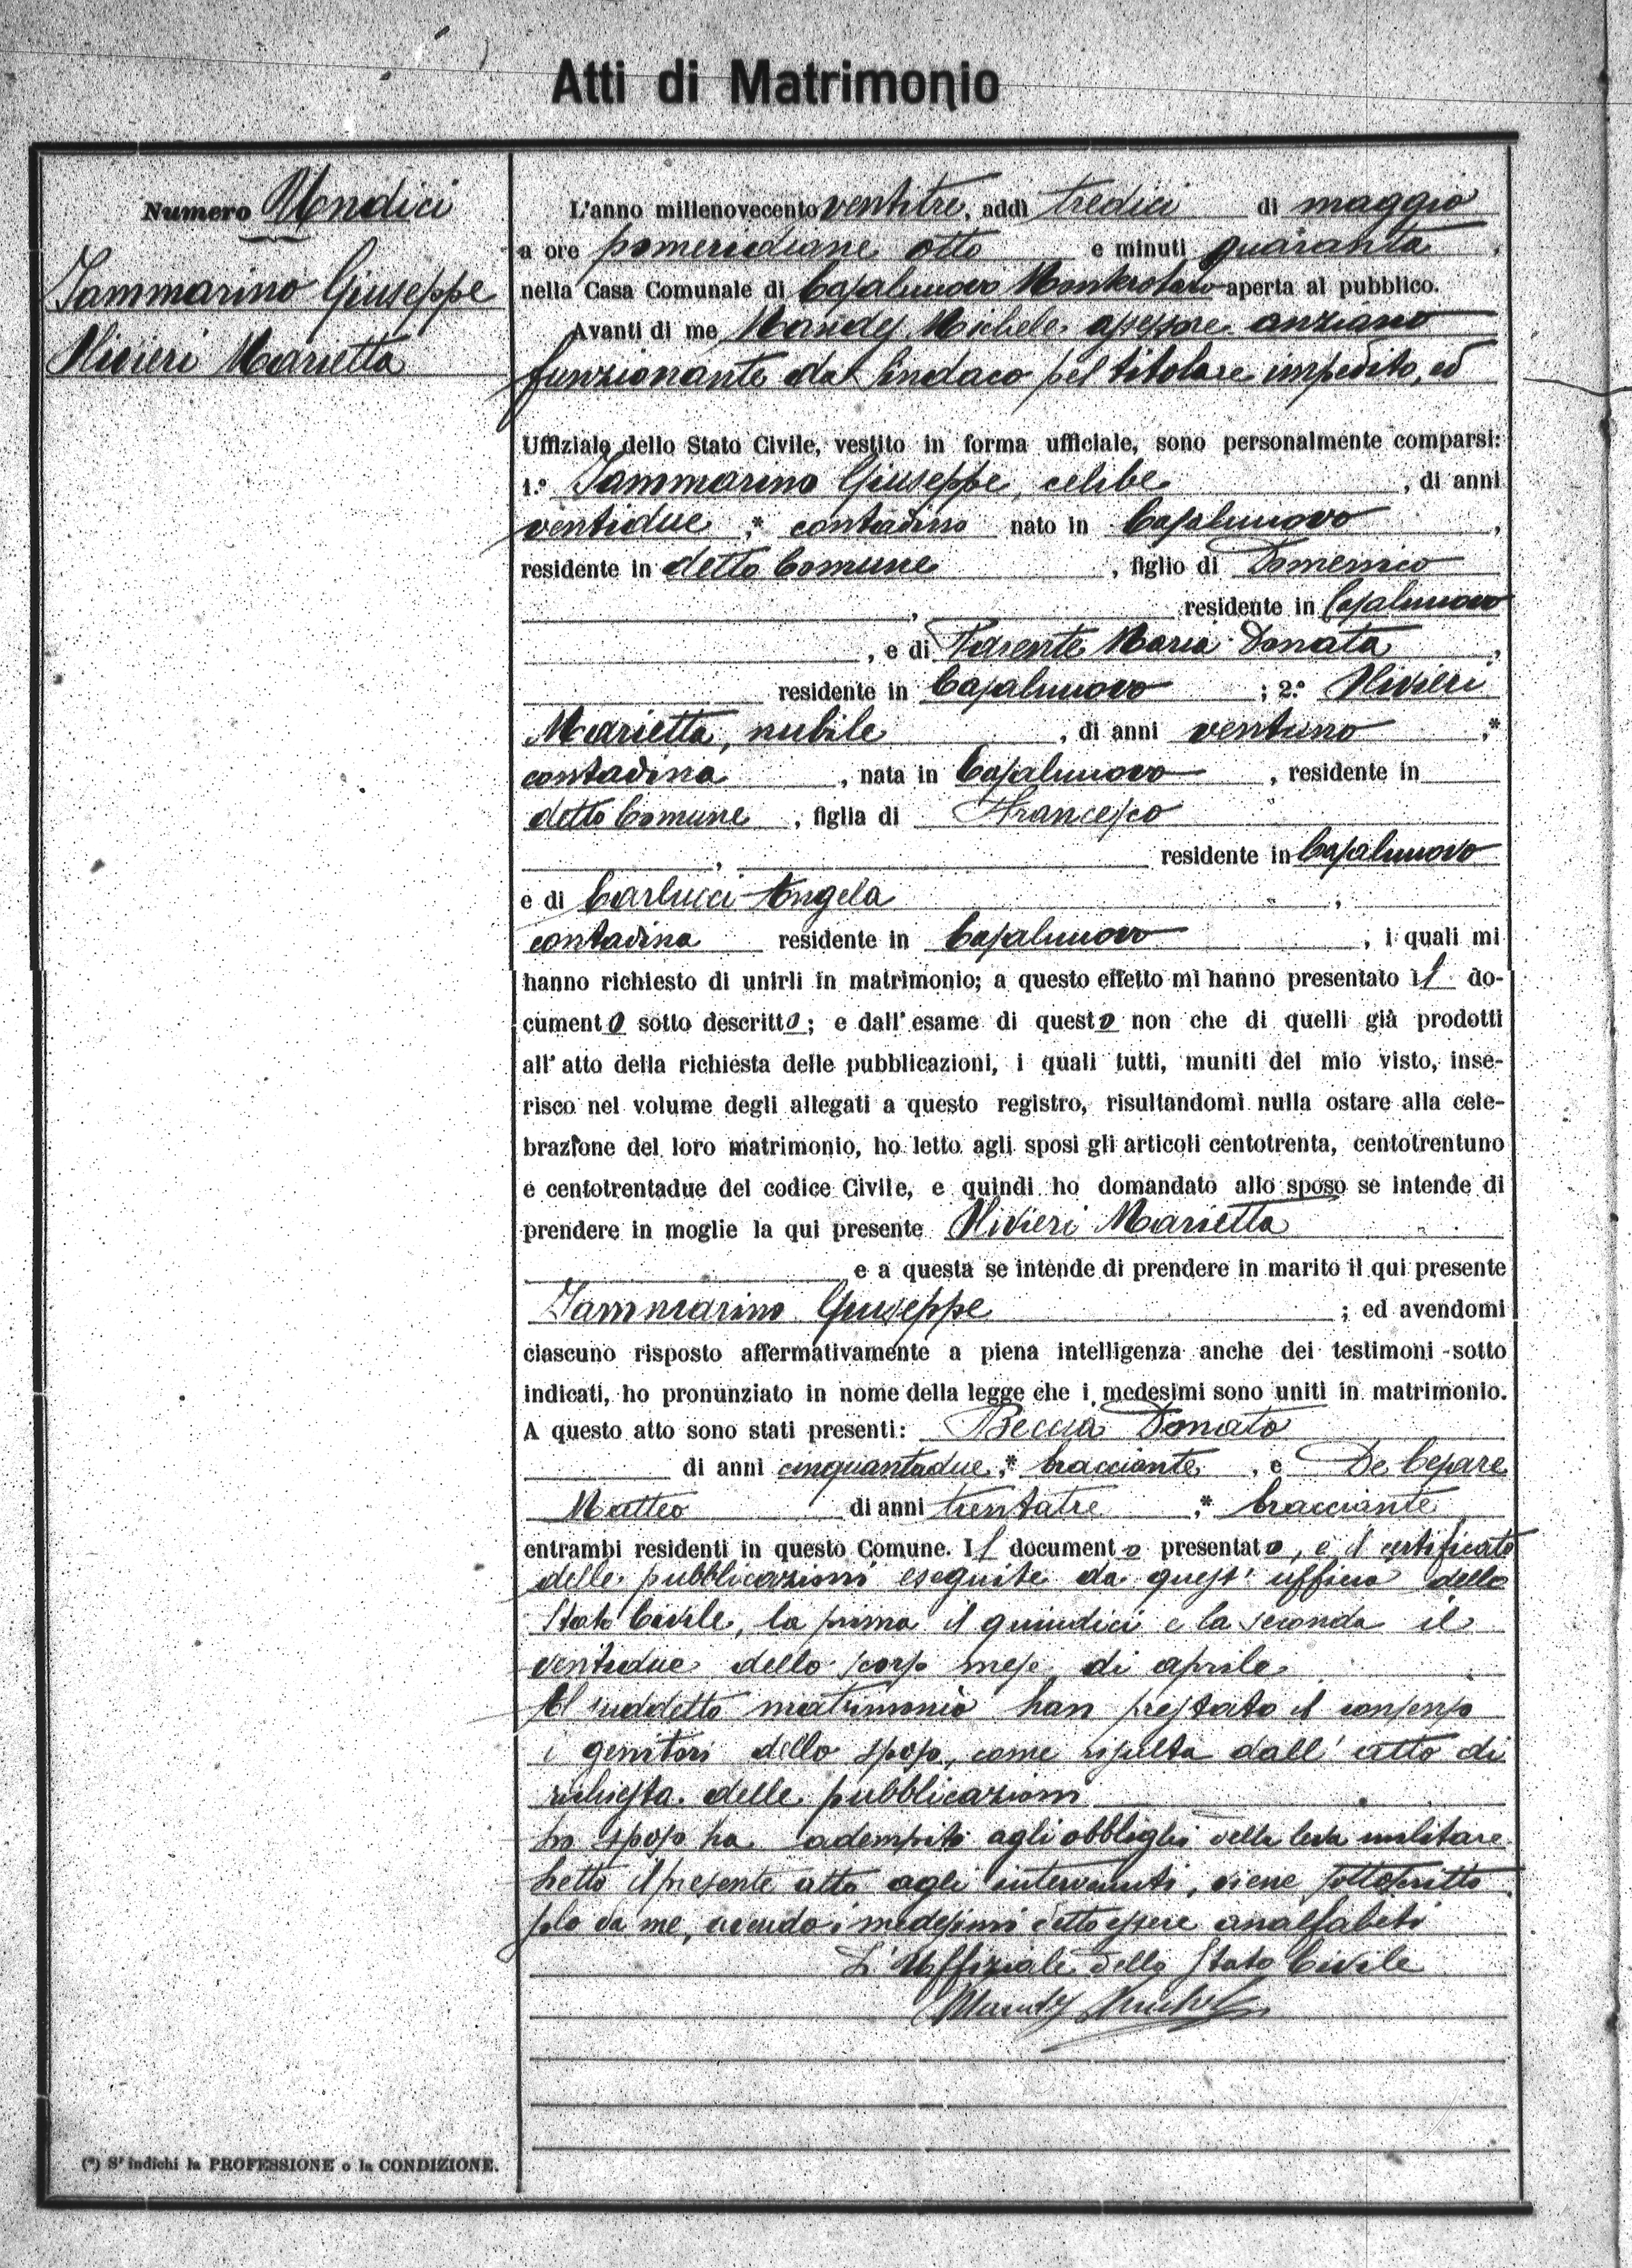 Atti di Matrimonio
Numero Undici
Iammarino Giuseppe
Olivieri Marietta
L'anno millenovecento ventitre, addì tredici di maggio
a ore pomeridiane otto e minuti quaranta,
nella Casa Comunale di Casalnuovo Monterotaro aperta al pubblico.
Avanti di me Mandes Michele assessore anziano
funzionante da Sindaco pel titolare impedito, ed
Uffiziale dello Stato Civile, vestito in forma ufficiale, sono personalmente comparsi:
1.° Iammarino Giuseppe, celibe, di anni
ventidue,* contadino nato in Casalnuovo,
residente in detto Comune, figlio di Domenico
, residente in Casalnuovo
, e di Parente Maria Donata,
residente in Casalnuovo; 2.° Olivieri
Marietta, nubile, di anni ventuno,*
contadina, nata in Casalnuovo, residente in
detto Comune, figlia di Francesco
, residente in Casalnuovo
e di Carlucci Angela,
contadina residente in Casalnuovo, i quali mi
hanno richiesto di unirli in matrimonio; a questo effetto mi hanno presentato il do-
cumento sotto descritto; e dall'esame di questo non che di quelli già prodotti
all'atto della richiesta delle pubblicazioni, i quali tutti, muniti del mio visto, inse-
risco nel volume degli allegati a questo registro, risultandomi nulla ostare alla cele-
brazione del loro matrimonio, ho letto agli sposi gli articoli centotrenta, centotrentuno
e centotrentadue del codice Civile, e quindi ho domandato allo sposo se intende di
prendere in moglie la qui presente Olivieri Marietta
e a questa se intende di prendere in marito il qui presente
Iammarino Giuseppe; ed avendomi
ciascuno risposto affermativamente a piena intelligenza anche dei testimoni sotto
indicati, ho pronunziato in nome della legge che i medesimi sono uniti in matrimonio.
A questo atto sono stati presenti: Beccia Donato
di anni cinquantadue,* bracciante, e De Cesare
Matteo di anni trentatre,* bracciante
entrambi residenti in questo Comune. Il documento presentato, è il certificato
delle pubblicazioni eseguite da quest'ufficio dello
Stato Civile, la prima il quindici e la seconda il
ventidue dello scorso mese di aprile.
Al suddetto matrimonio han prestato il consenso
i genitori dello sposo, come risulta dall'atto di
richiesta delle pubblicazioni
Lo sposo ha adempito agli obblighi della leva militare.
Letto il presente atto agli intervenuti, viene sottoscritto
solo da me, avendo i medesimi detto essere analfabeti
L'Uffiziale dello Stato Civile
Mandes Michele
(*) S'indichi la PROFESSIONE o la CONDIZIONE.